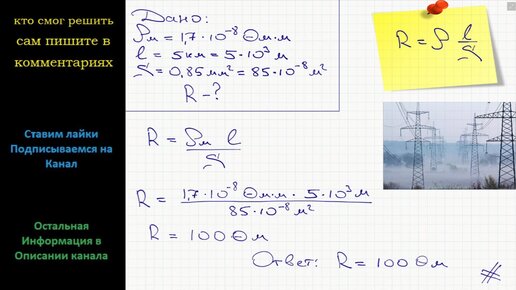 кто смог решить
сам пишите в
комментариях
Ставим лайки
Подписываемся на
Канал
Остальная
Информация в
Описании канала
Дано:
ρм = 1,7·10⁻⁸ Ом·м
l = 5км = 5·10³ м
S = 0,85мм² = 85·10⁻⁸ м²
R - ?
R = ρ l/S
R = ρм l/S
R = 1,7·10⁻⁸ Ом·м · 5·10³ м / 85·10⁻⁸ м²
R = 100 Ом
Ответ: R = 100 Ом